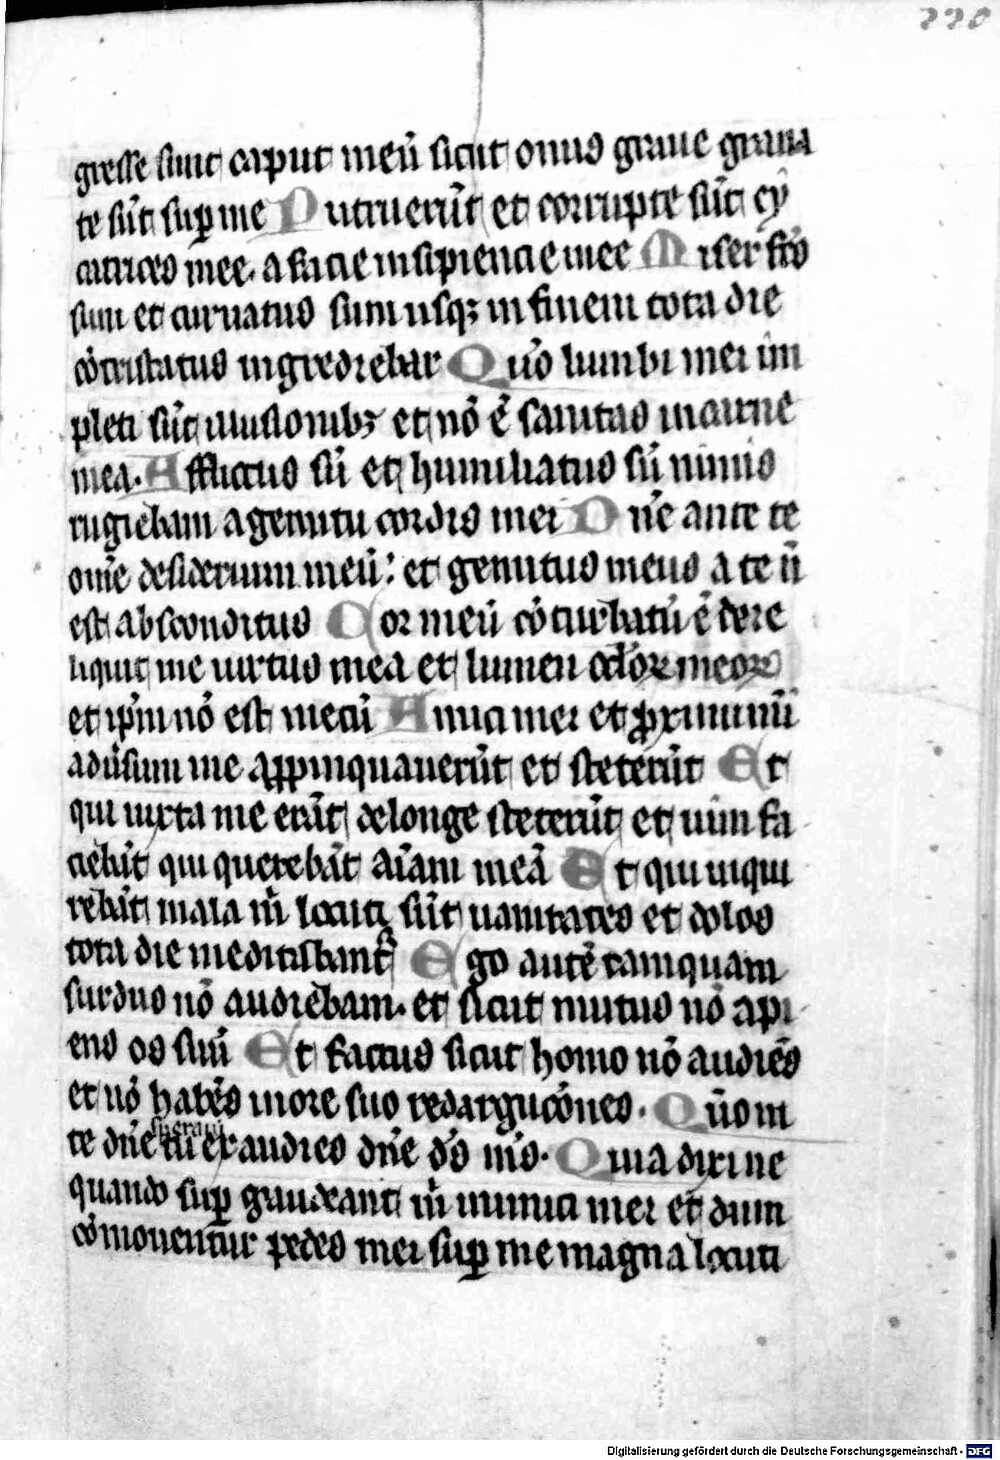 220
gresse sunt caput meū sicut onus graue graua
te sūt sup me Putruerūt et corrupte sūt cy
catrices mee. a facie insipiencie mee Miser fcūs
sum et curuatus sum usqꝫ in finem tota die
cōtristatus ingrediebar Qm̄ lumbi mei im
pleti sūt illusionibꝫ et nō ē sanitas in carne
mea. Afflictus sū et humiliatus sū nimis
rugiebam a gemitu cordis mei Dn̄e ante te
om̄e desiderium meū: et gemitus meus a te n̄
est absconditus Cor meū cōturbatū ē dere
liquit me uirtus mea et lumen oc̄loꝝ meoꝝ
et ip̄m nō est mecū Amici mei et ꝓximi m̄i
adūsum me appinquauerūt et steterūt Et
qui iuxta me erāt de longe steterūt et uim fa
ciebāt qui querebāt aīam meā Et qui inqui
rebāt mala m̄ locuti sūt uanitates et dolos
tota die meditabant᷑ Ego autē tamquam
surdus nō audiebam. et sicut mutus nō api
ens os suū Et factus sicut homo nō audiēs
et nō habēs in ore suo redargucōnes. Qūo in
te dn̄e speraui tu exaudies dn̄e ds̄ ms̄. Quia dixi ne
quando sup gaudeant m̄ inimici mei et dum
cōmouentur pedes mei sup me magna locuti
Digitalisierung gefördert durch die Deutsche Forschungsgemeinschaft - DFG